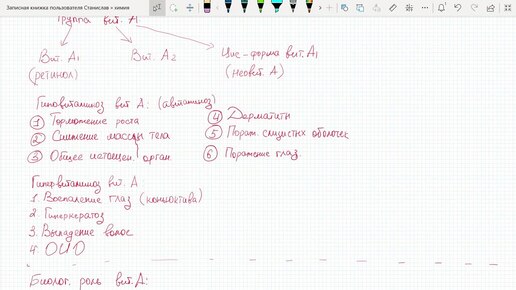 Записная книжка пользователя Станислав » химия
Группа вит. А
Вит. А1 Вит. А2 Цис-форма вит. А1
(ретинол) (неовит. А)
Гиповитаминоз вит А: (авитаминоз)
① Торможение роста ④ Дерматиты
② Снижение массы тела ⑤ Пораж. слизистых оболочек
③ Общее истощен. орган. ⑥ Поражение глаз.
Гипервитаминоз вит. А
1. Воспаление глаз (конъюктива)
2. Гиперкератоз
3. Выпадение волос
4. ОИО
Биолог. роль вит. А: